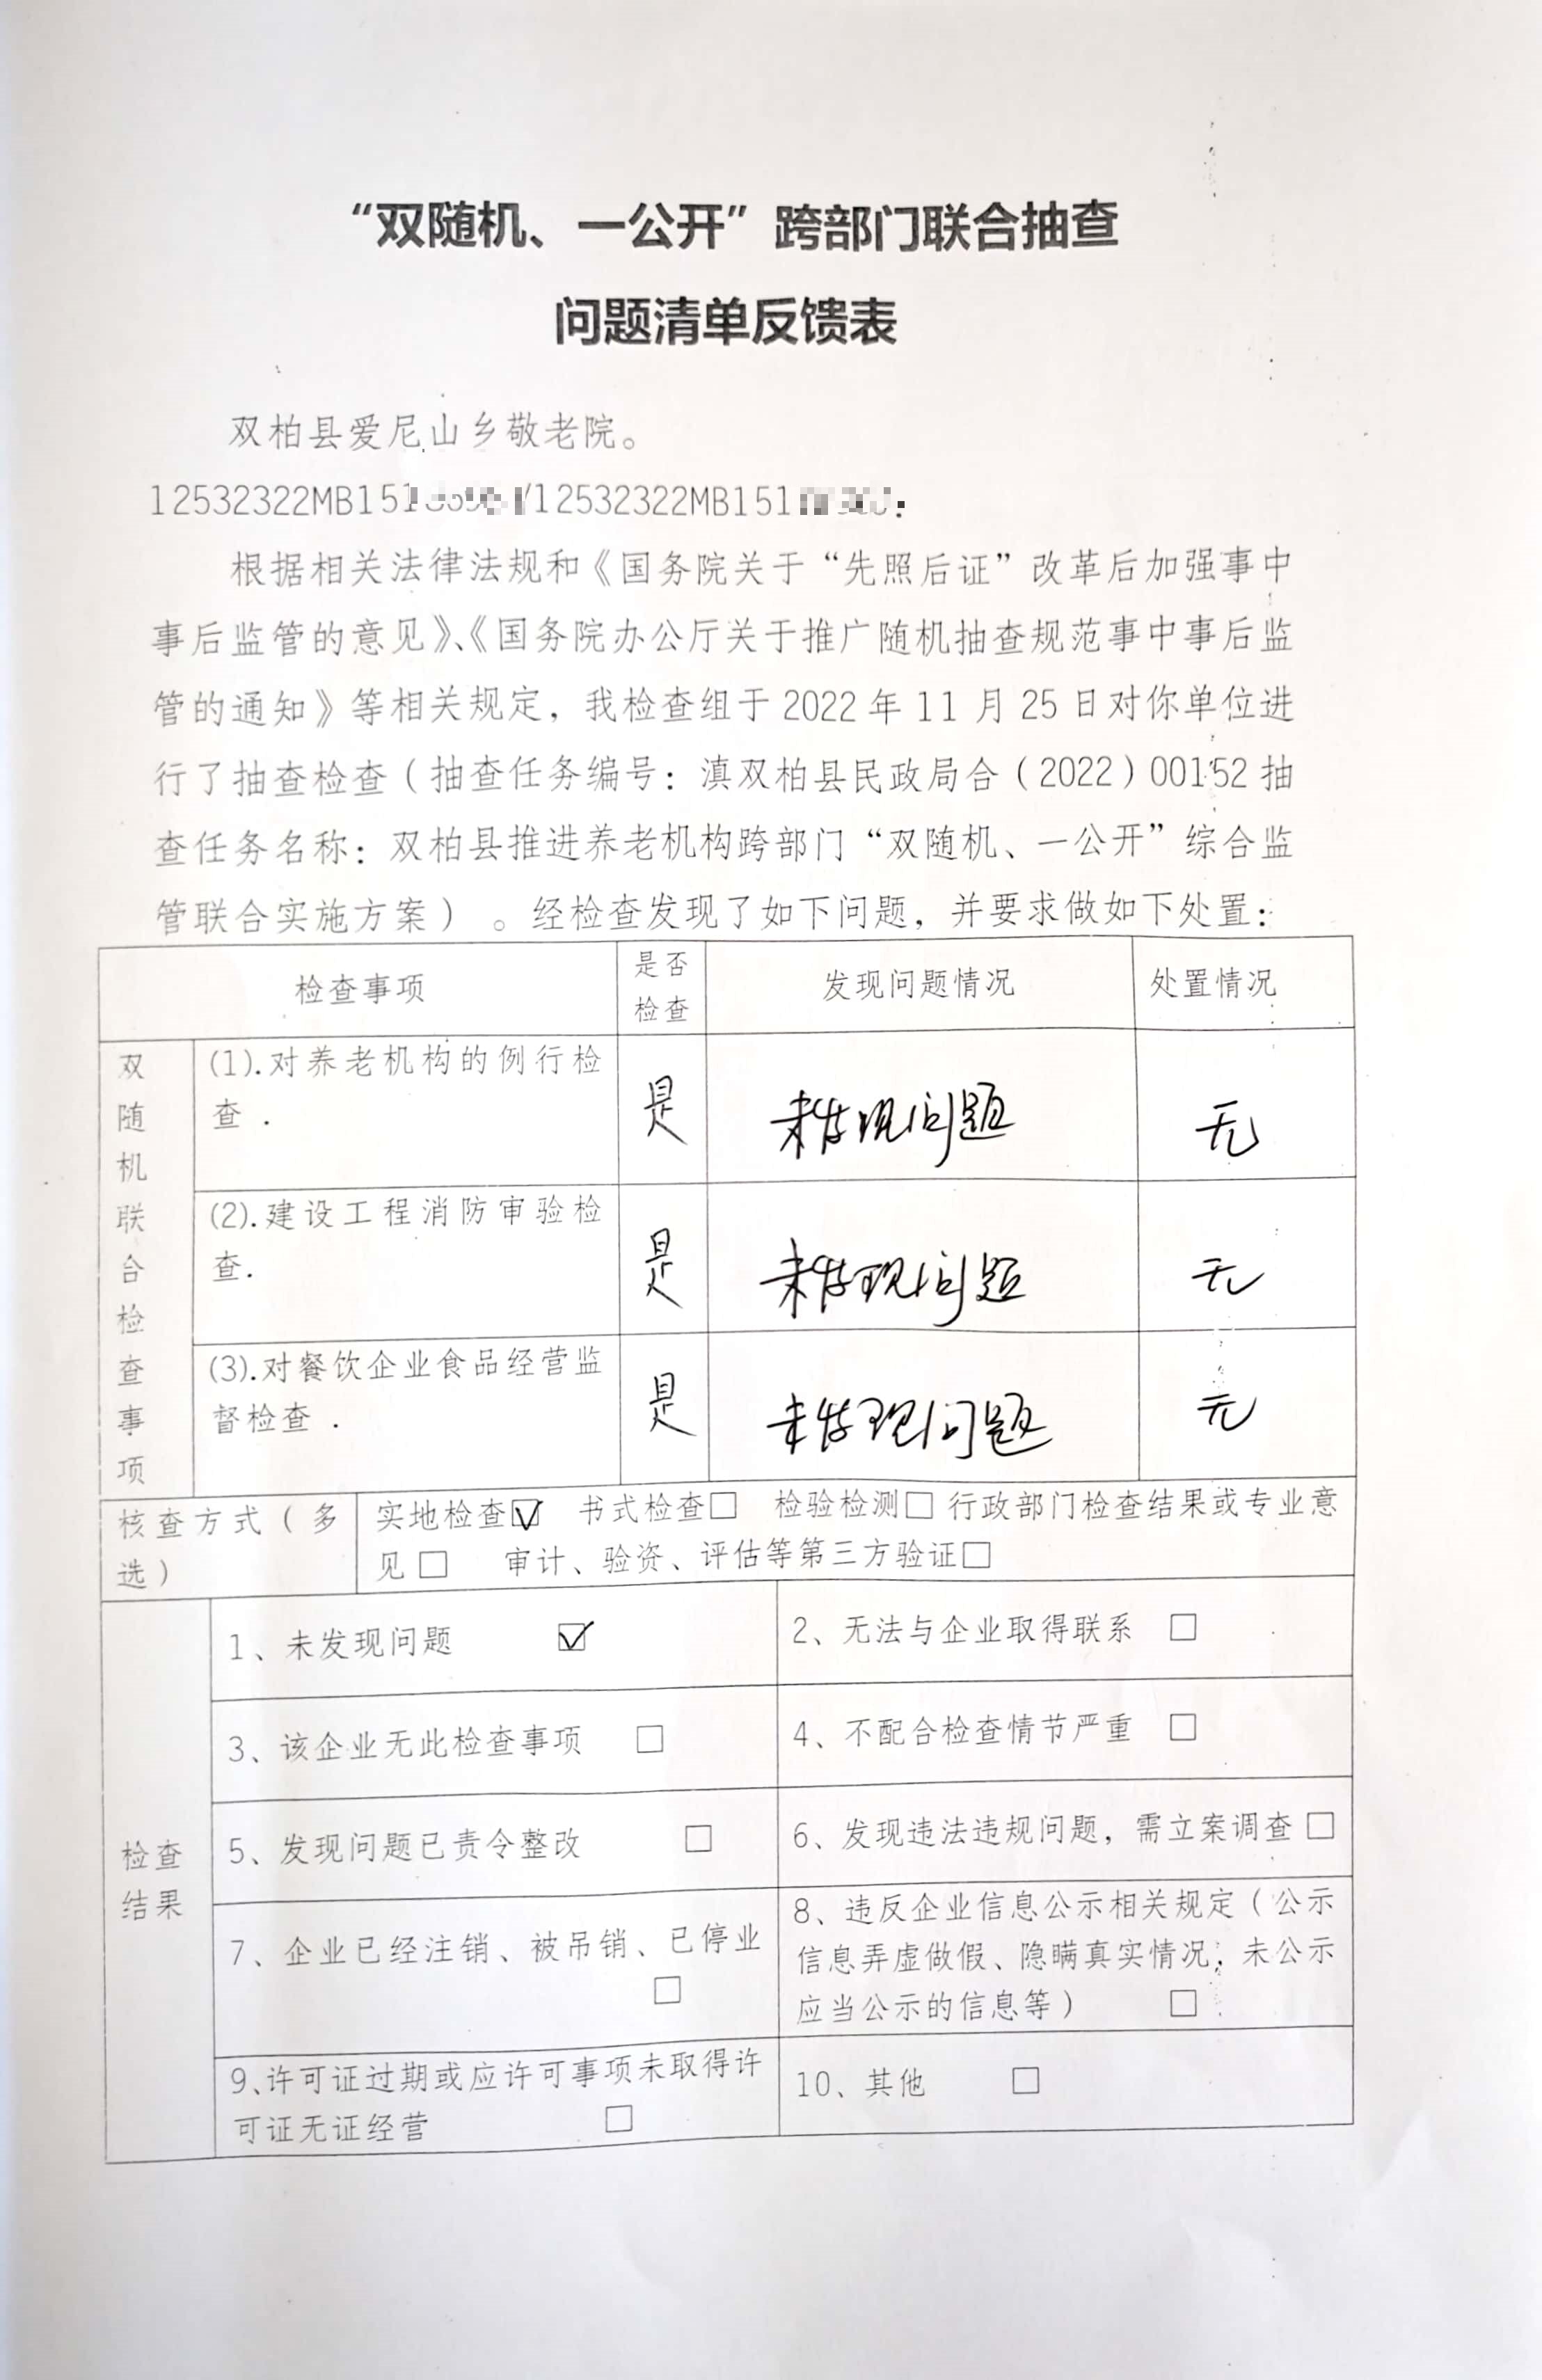 “双随机、一公开”跨部门联合抽查
问题清单反馈表
双柏县爱尼山乡敬老院。
12532322MB151 /12532322MB151 :
根据相关法律法规和《国务院关于“先照后证”改革后加强事中
事后监管的意见》、《国务院办公厅关于推广随机抽查规范事中事后监
管的通知》等相关规定，我检查组于 2022 年 11 月 25 日对你单位进
行了抽查检查（抽查任务编号：滇双柏县民政局合（2022）00152 抽
查任务名称：双柏县推进养老机构跨部门“双随机、一公开”综合监
管联合实施方案）。经检查发现了如下问题，并要求做如下处置：
检查事项 是否检查 发现问题情况 处置情况
双随机联合检查事项
(1).对养老机构的例行检
查 .
是 未发现问题 无
(2).建设工程消防审验检
查.
是 未发现问题 无
(3).对餐饮企业食品经营监
督检查 .
是 未发现问题 无
核查方式（多
选）
实地检查☑ 书式检查□ 检验检测□ 行政部门检查结果或专业意
见□ 审计、验资、评估等第三方验证□
检查
结果
1、未发现问题 ☑
2、无法与企业取得联系 □
3、该企业无此检查事项 □
4、不配合检查情节严重 □
5、发现问题已责令整改 □
6、发现违法违规问题，需立案调查□
7、企业已经注销、被吊销、已停业
□
8、违反企业信息公示相关规定（公示
信息弄虚做假、隐瞒真实情况，未公示
应当公示的信息等） □
9、许可证过期或应许可事项未取得许
可证无证经营 □
10、其他 □